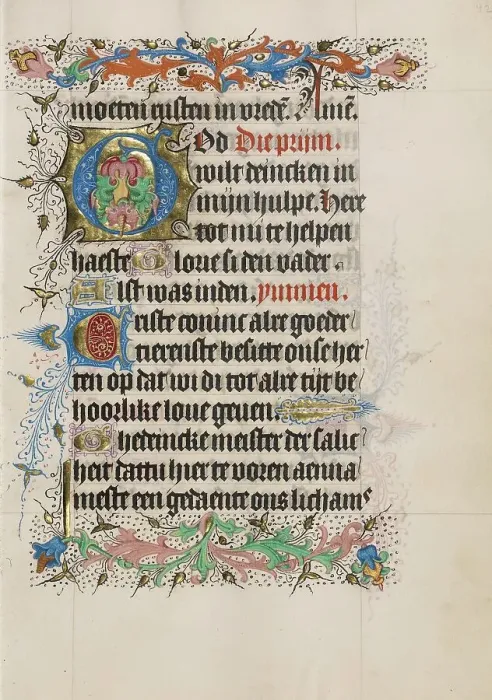 moeten rusten in vredē. Amē.
God Die prim.
wilt deincken in
mijn hulpe. Here
tot mi te helpen
haeste Glorie si den vader.
Alst was inden. ymmen.
Criste coninc alre goeder
tierenste besitte onse her
ten op dat wi di tot alre tijt be
hoorlike loue geuen.
Ghedeincke meister der salic
heit dattu hier te voren aenna
meste een gedaente ons lichams